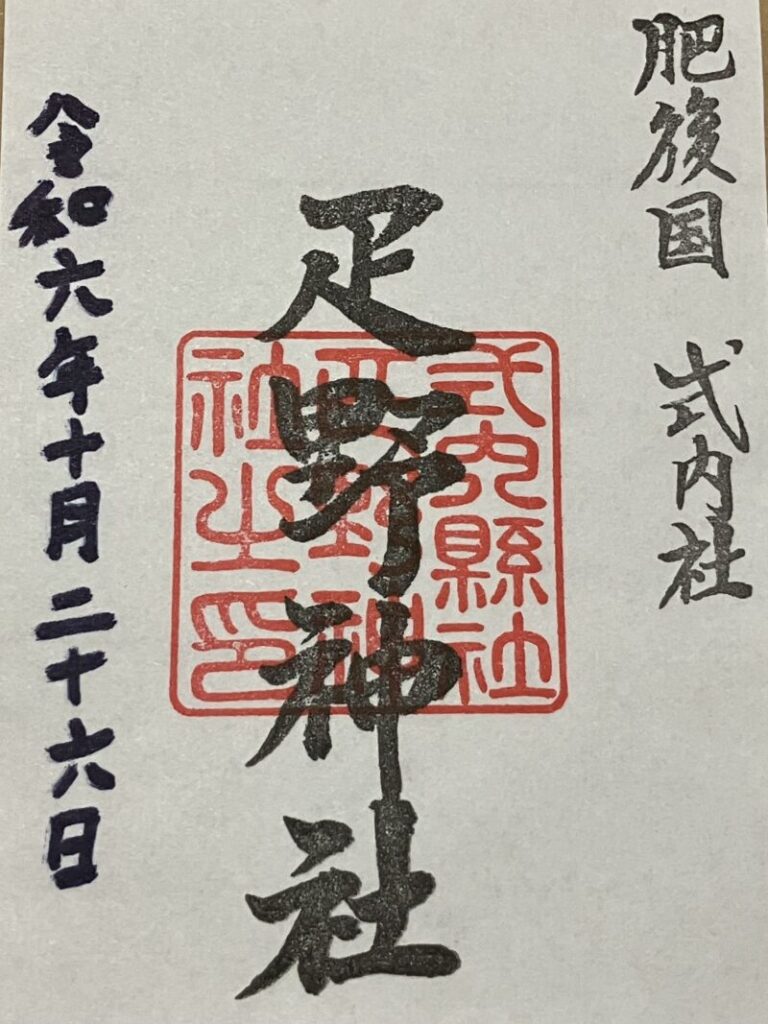 肥後国 式内社
疋野神社
式内縣社
疋野神
社之印
令和六年十月二十六日